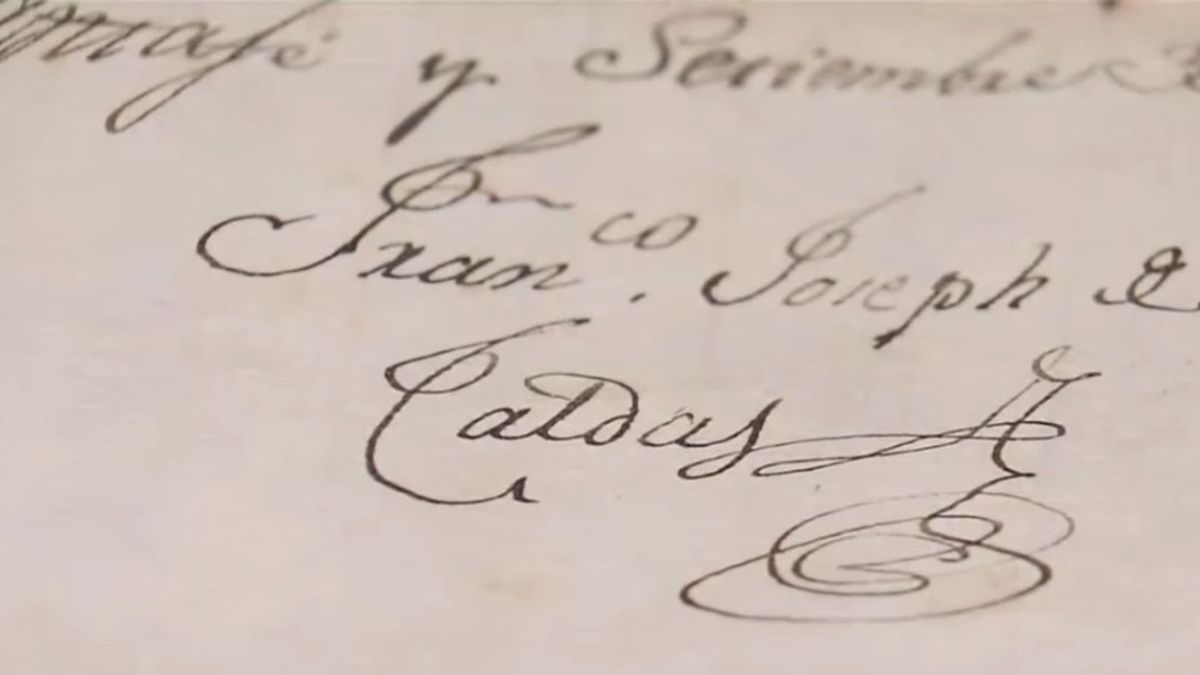 antafé y Setiembre
Fran.co Joseph de
Caldas